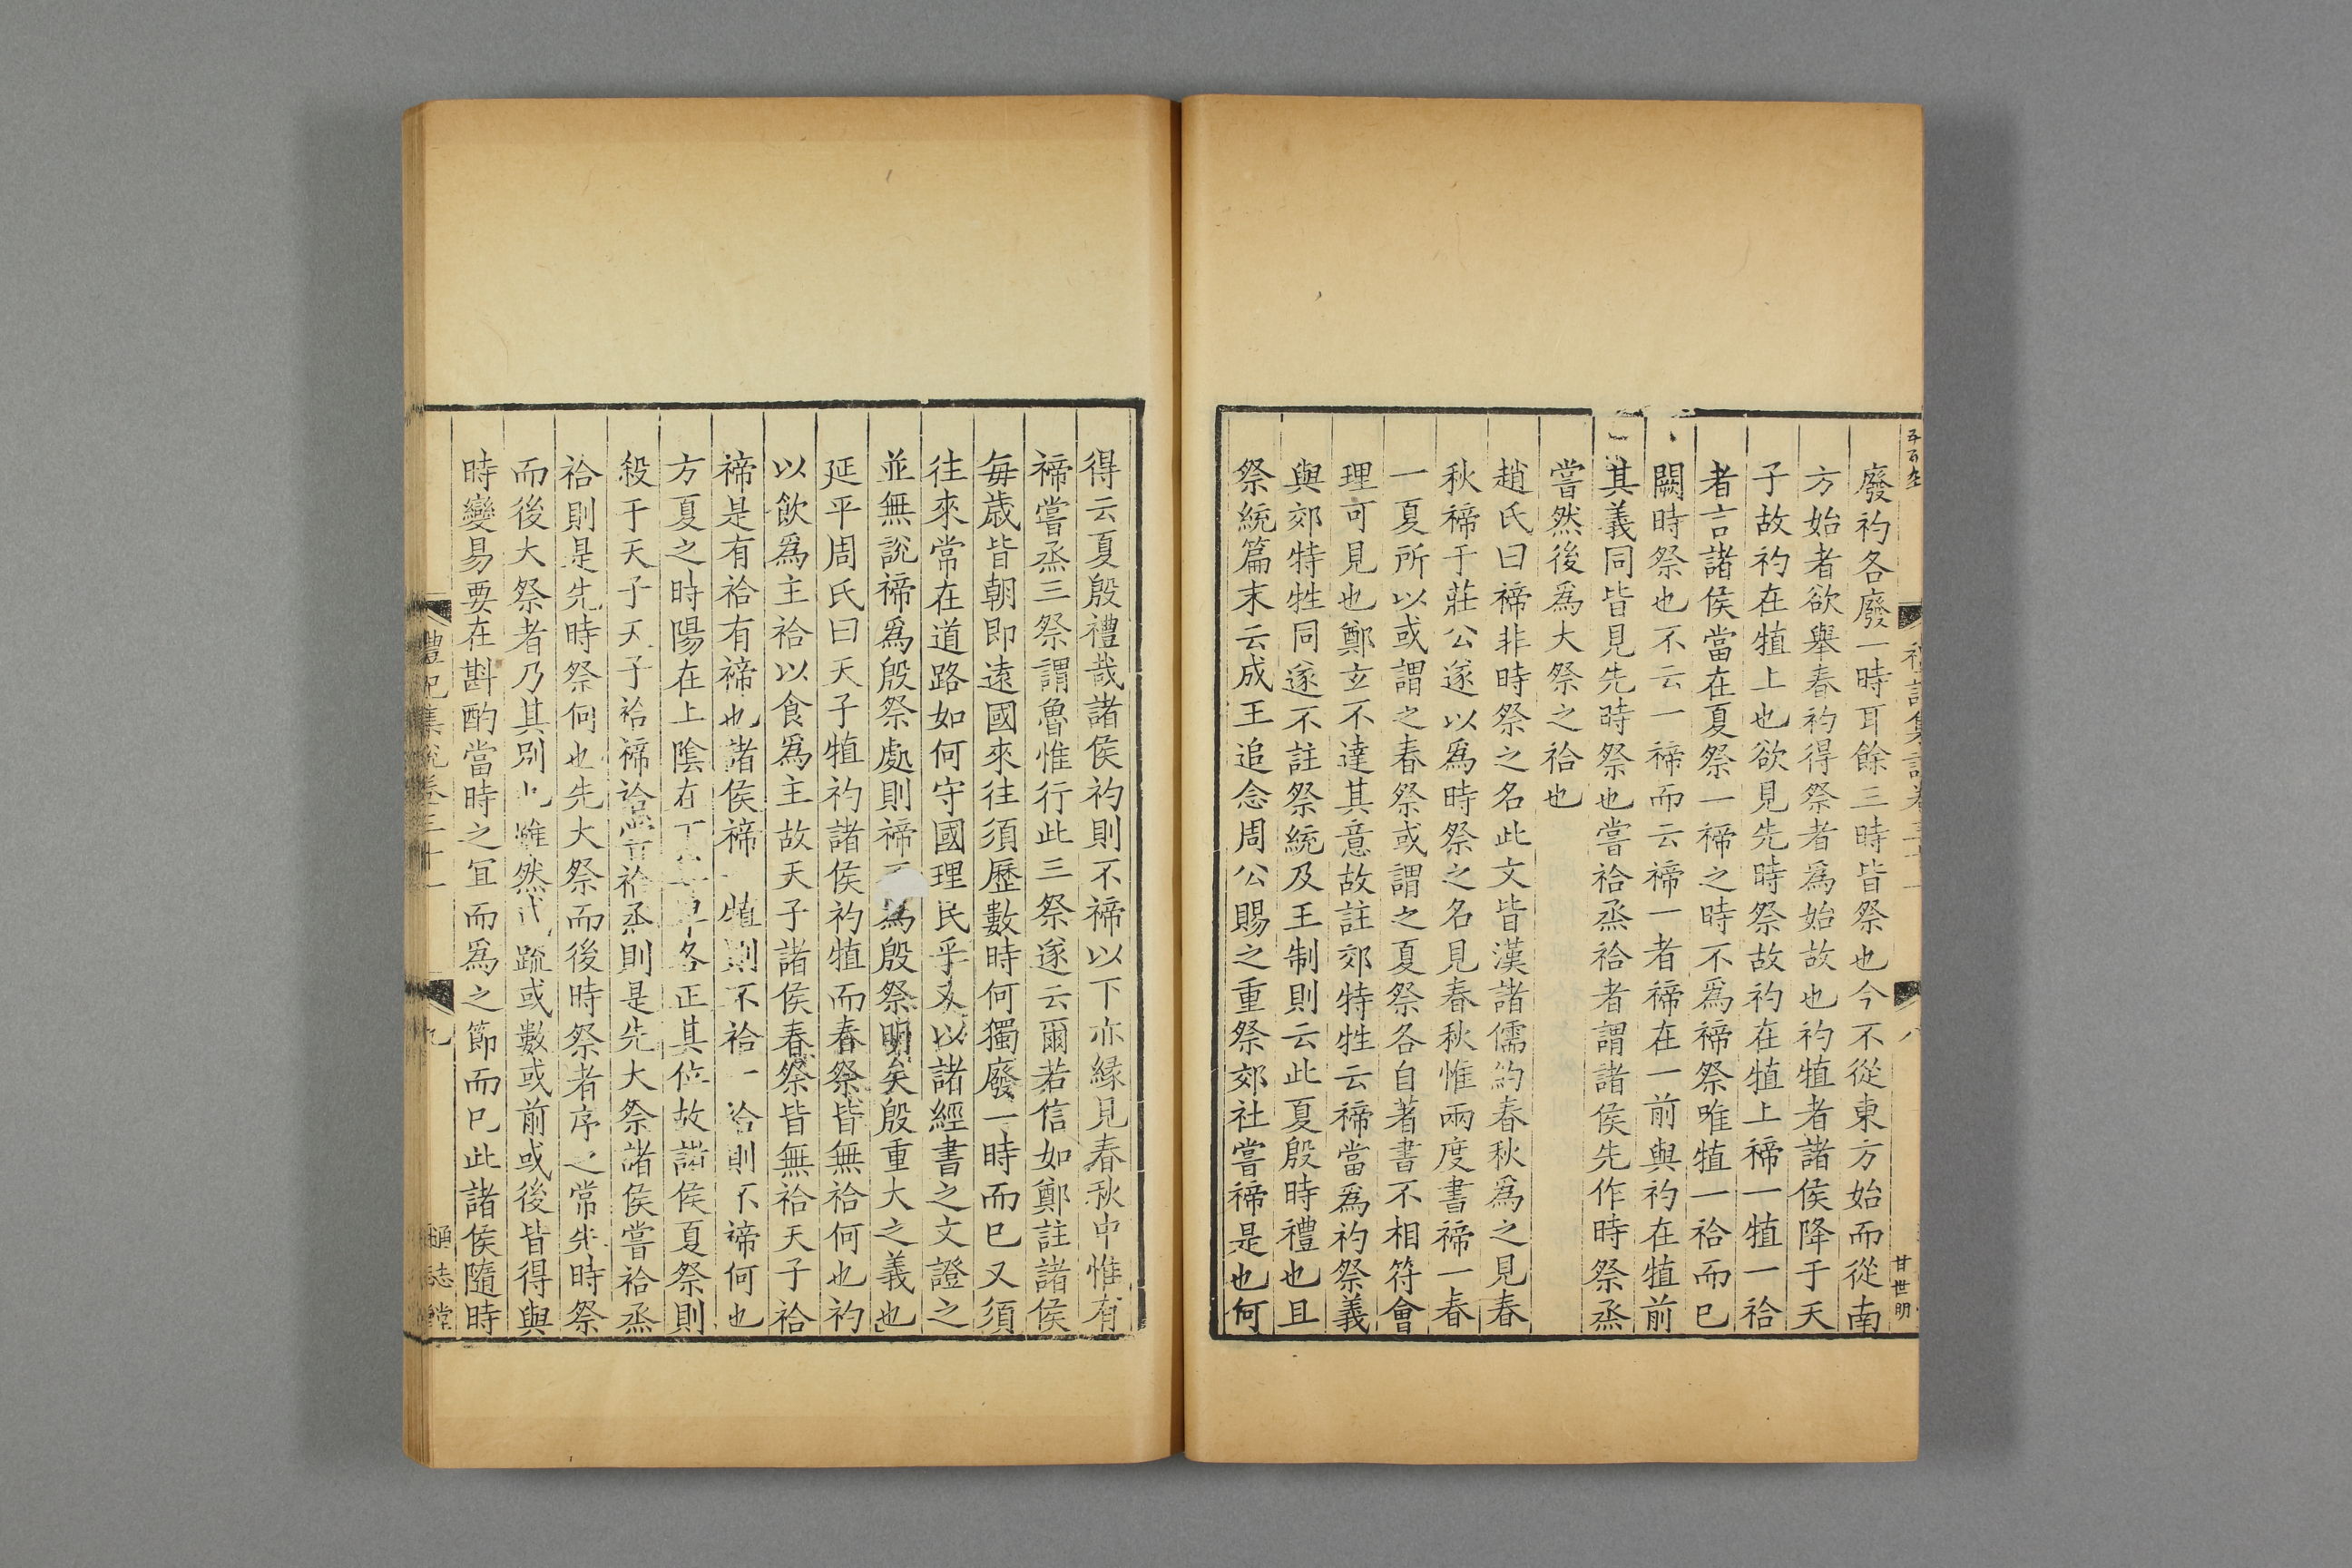 廢礿各廢一時耳餘三時皆祭也今不從東方始而從南
方始者欲舉春礿得祭者爲始故也礿犆者諸侯降于天
子故礿在犆上也欲見先時祭故礿在犆上禘一犆一祫
者言諸侯當在夏祭一禘之時不爲禘祭唯犆一祫而已
闕時祭也不云一禘而云禘一者禘在一前與礿在犆前
其義同皆見先時祭也嘗祫烝祫者謂諸侯先作時祭烝
嘗然後爲大祭之祫也
趙氏曰禘非時祭之名此文皆漢諸儒約春秋爲之見春
秋禘于莊公遂以爲時祭之名見春秋惟兩度書禘一春
一夏所以或謂之春祭或謂之夏祭各自著書不相符會
理可見也鄭玄不達其意故註郊特牲云禘當爲礿祭義
與郊特牲同遂不註祭統及王制則云此夏殷時禮也且
祭統篇末云成王追念周公賜之重祭郊社嘗禘是也何
甘世明
得云夏殷禮哉諸侯礿則不禘以下亦緣見春秋中惟有
禘嘗烝三祭謂魯惟行此三祭遂云爾若信如鄭註諸侯
每歲皆朝即遠國來往須歷數時何獨廢一時而已又須
往來常在道路如何守國理民乎又以諸經書之文證之
並無說禘爲殷祭處則禘爲殷祭明矣殷重大之義也
延平周氏曰天子犆礿諸侯礿犆而春祭皆無祫何也礿
以飲爲主祫以食爲主故天子諸侯春祭皆無祫天子祫
禘是有祫有禘也諸侯禘一犆則不祫一祫則不禘何也
方夏之時陽在上陰在下各正其位故諸侯夏祭則
殺于天子天子祫禘祫嘗祫烝則是先大祭諸侯嘗祫烝
祫則是先時祭何也先大祭而後時祭者序之常先時祭
而後大祭者乃其別也雖然疏或數或前或後皆得與
時變易要在斟酌當時之宜而爲之節而已此諸侯隨時
禮記集說卷三十一
九
通志堂